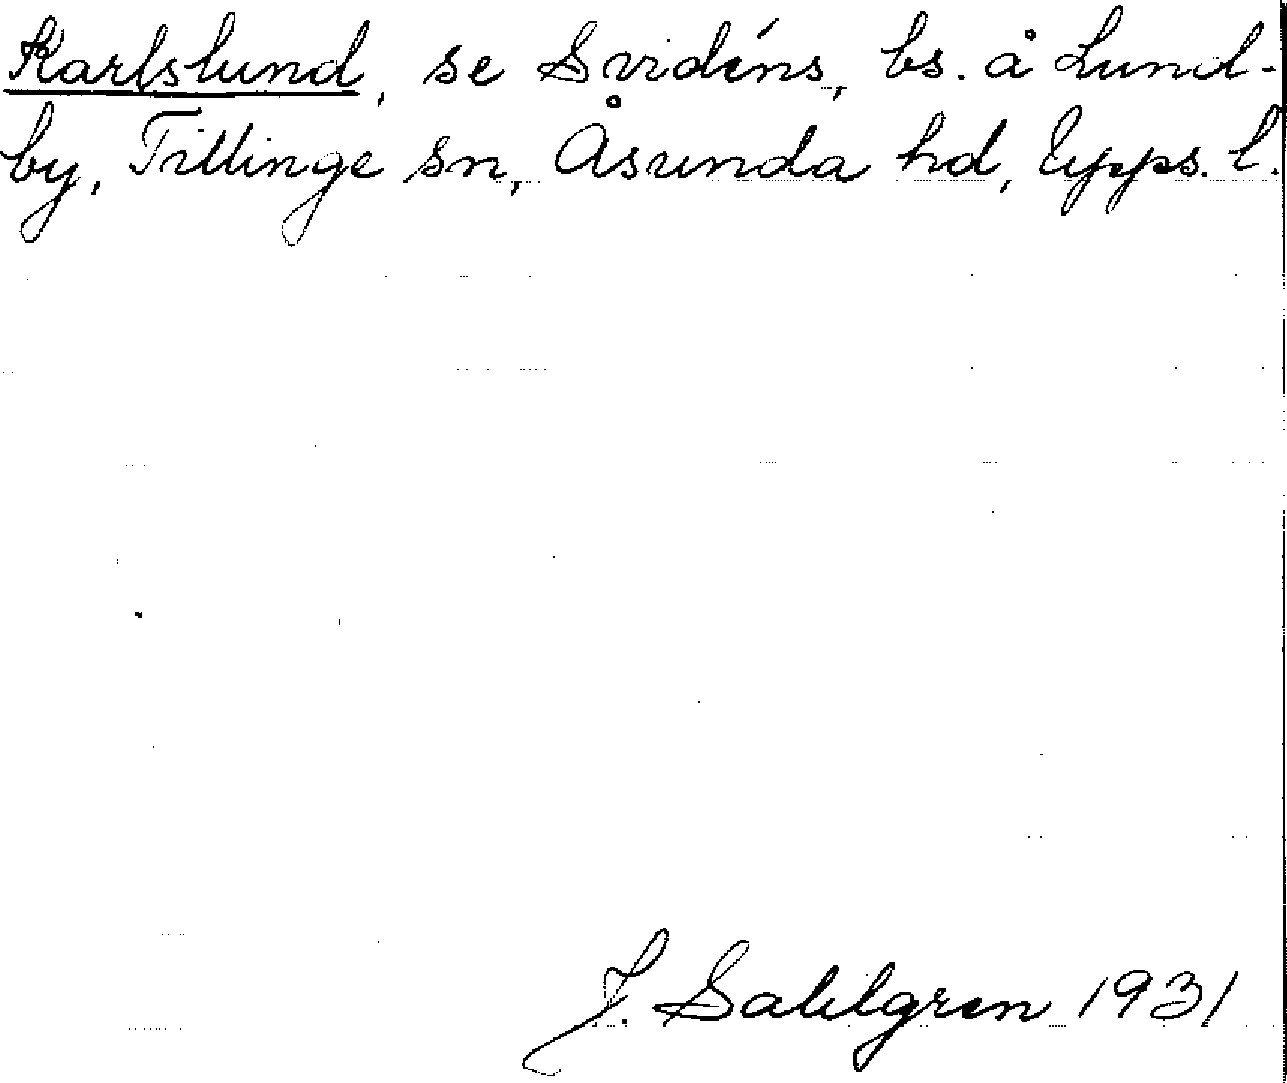 Karlslund, se Svidéns, bs. å Lund-
by, Tillinge sn, Åsunda hd, Upps. l.
J. Sahlgren 1931